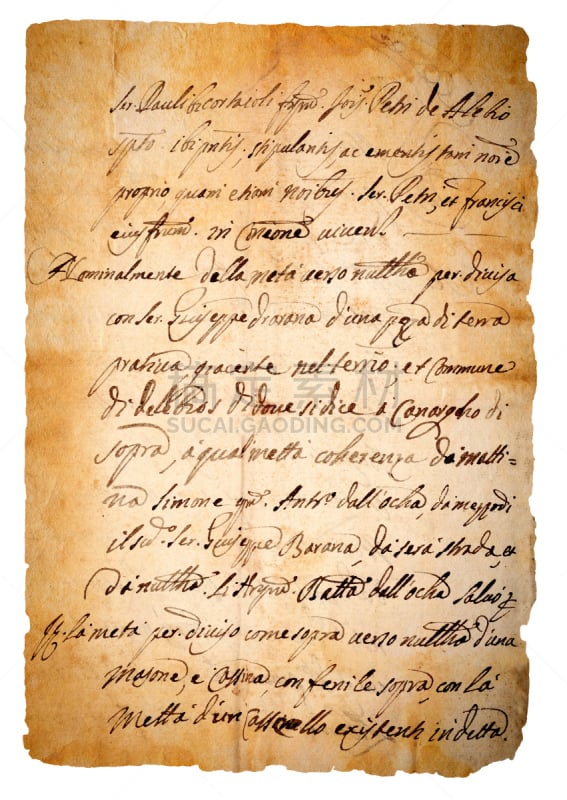 Ser. Pauli Bicortaioli qm. Jois. Petri de Alebio
spto. ibi pntis. stipulantis ac ementis tam noie
proprio quam etiam noibus. Ser. Petri, et Francisci
eius frum. in Coneone viven.
Nominalmente della metà verso per. diviso
con Ser. Giuseppe d'una pezza di terra
prativa giacente nel terrio, et Commune
di dove si dice à di
sopra, à qual metta coherenza da matti=
na Simone qm. Antº. dall'ocha, da mezzodi
il sudº. Ser. Giuseppe Barana, da sera strada, et
da Li Batta dall'ocha salvo
It. la metà per. diviso come sopra verso d'una
masone, e Cassina, con fenile sopra, con la
Mettà d'un existenti in detta.
稿定素材
SUCAI.GAODING.COM